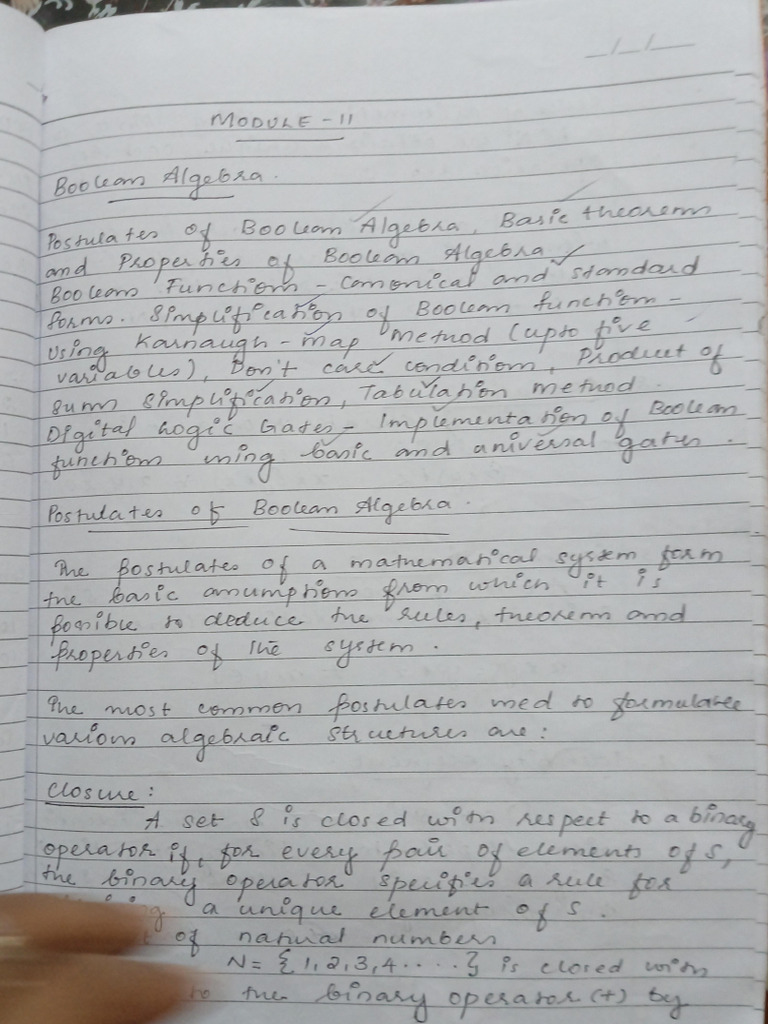 __/__/__
MODULE - II
Boolean Algebra.
Postulates of Boolean Algebra, Basic theorem
and Properties of Boolean Algebra
Boolean Functions - Canonical and standard
forms. Simplification of Boolean function -
Using Karnaugh - map Method (upto five
variables), Don't care conditions, Product of
sums simplification, Tabulation method.
Digital Logic Gates - Implementation of Boolean
functions using basic and universal gates.
Postulates of Boolean Algebra.
The Postulates of a mathematical system form
the basic assumptions from which it is
possible to deduce the rules, theorem and
properties of the system.
The most common postulates used to formulate
various algebraic structures are:
Closure:
A set S is closed with respect to a binary
operator if, for every pair of elements of S,
the binary operator specifies a rule for
a unique element of S.
of natural numbers
N = {1, 2, 3, 4 .....} is closed with
to the binary operator (+) by